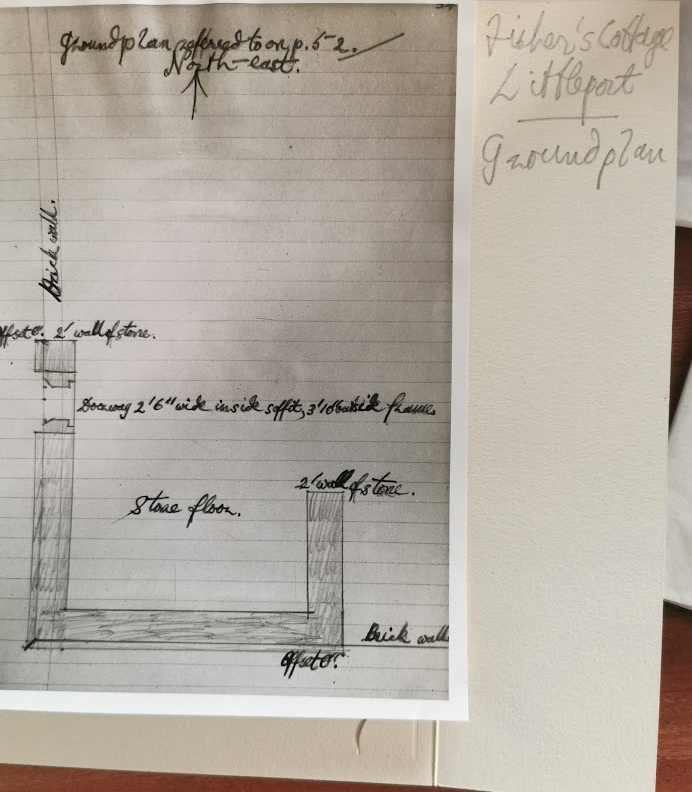 Groundplan referred to on p. 52.
North-east.
Brick wall.
Offset 2' wall of stone.
Doorway 2'6" wide inside soffit, 3'10 outside frame.
2' wall of stone.
Stone floor.
Brick wall
Offset
Fisher's Cottage
Littleport
Groundplan